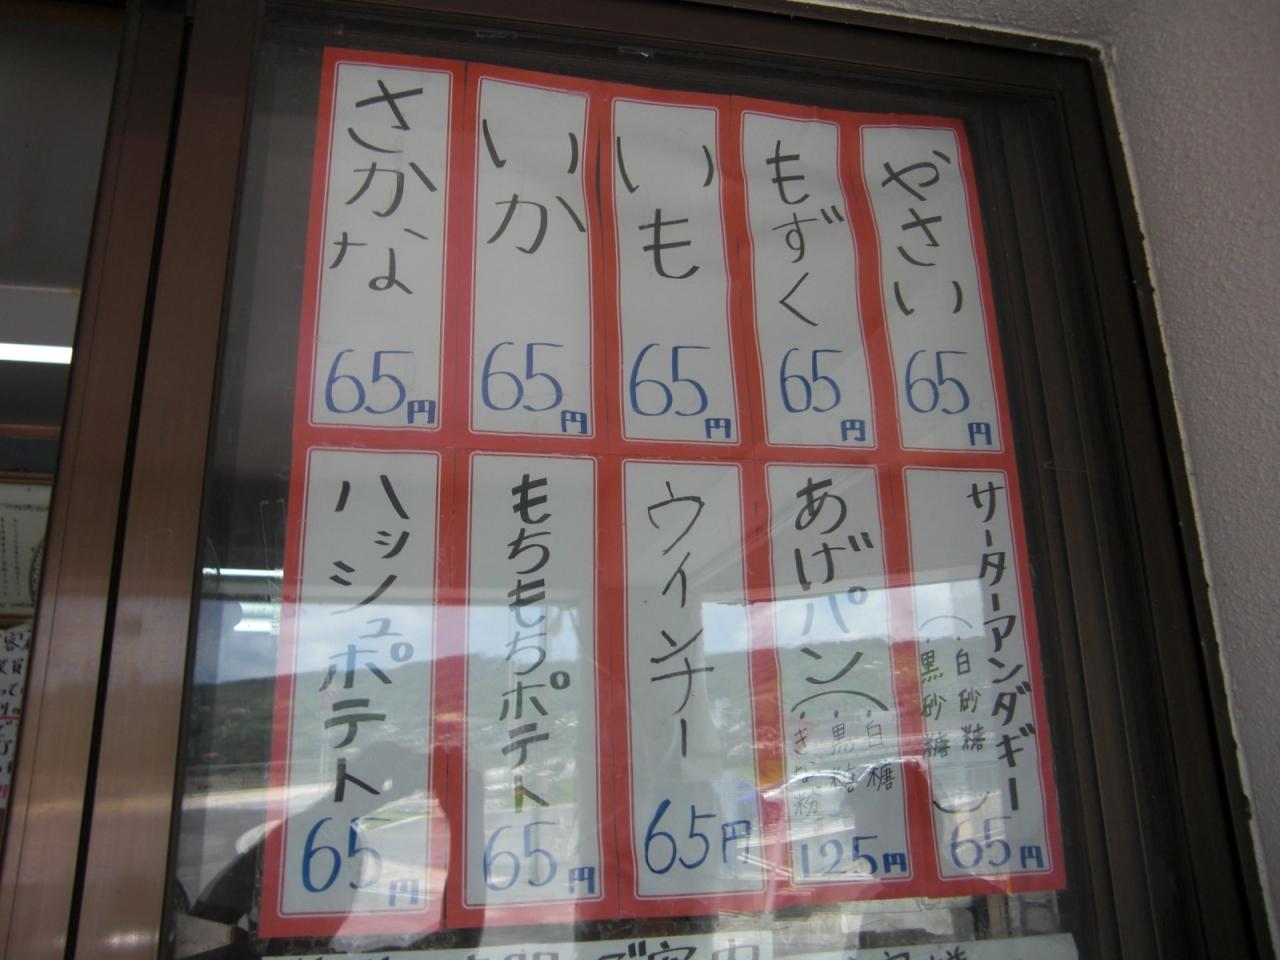 さかな
65円
いか
65円
いも
65円
もずく
65円
やさい
65円
ハッシュポテト
65円
もちもちポテト
65円
ウィンナー
65円
あげパン
(・白糖
・黒糖
・きな粉
125円
サーターアンダギー
(・白砂糖
・黒砂糖)
65円
ご案内